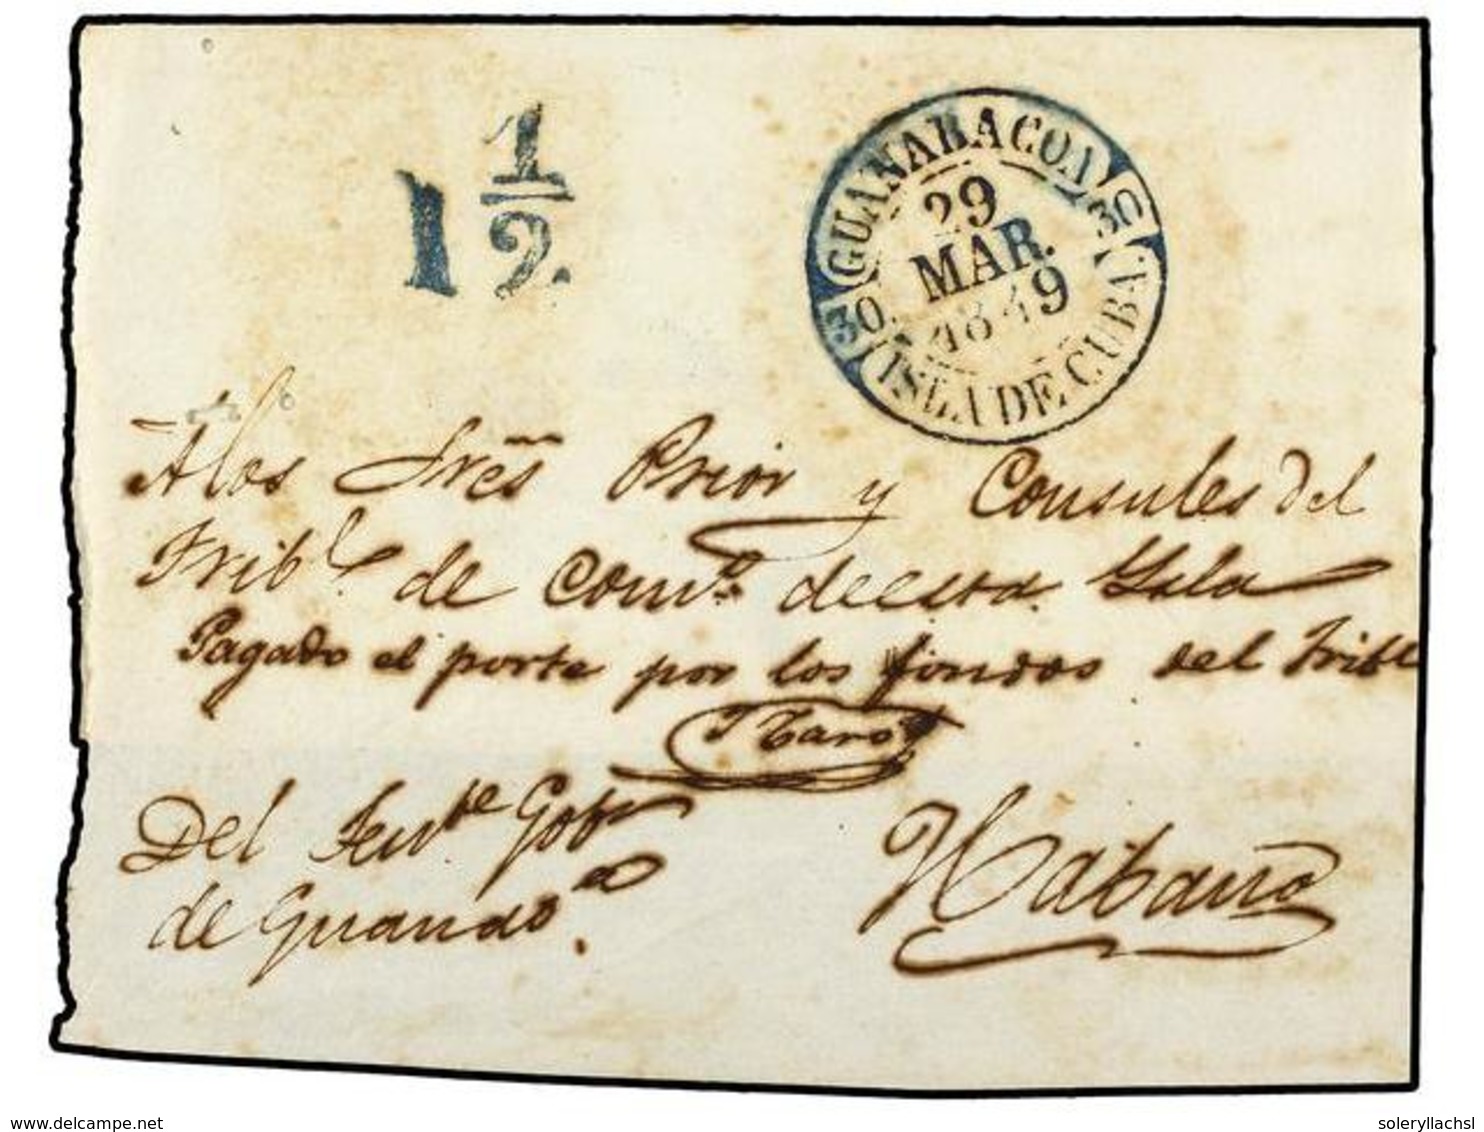 1 1/2.
GUANABACOA
29
MAR.
1849
30. 30
ISLA DE CUBA.
A los Sres Prior y Consules del
Tribl. de Como. de esta Ysla
Pagado el porte por los fondos del Tribl
Del Tente Gobr
de Guanaboa.
Habana
delcampe.net
soleryllachsl